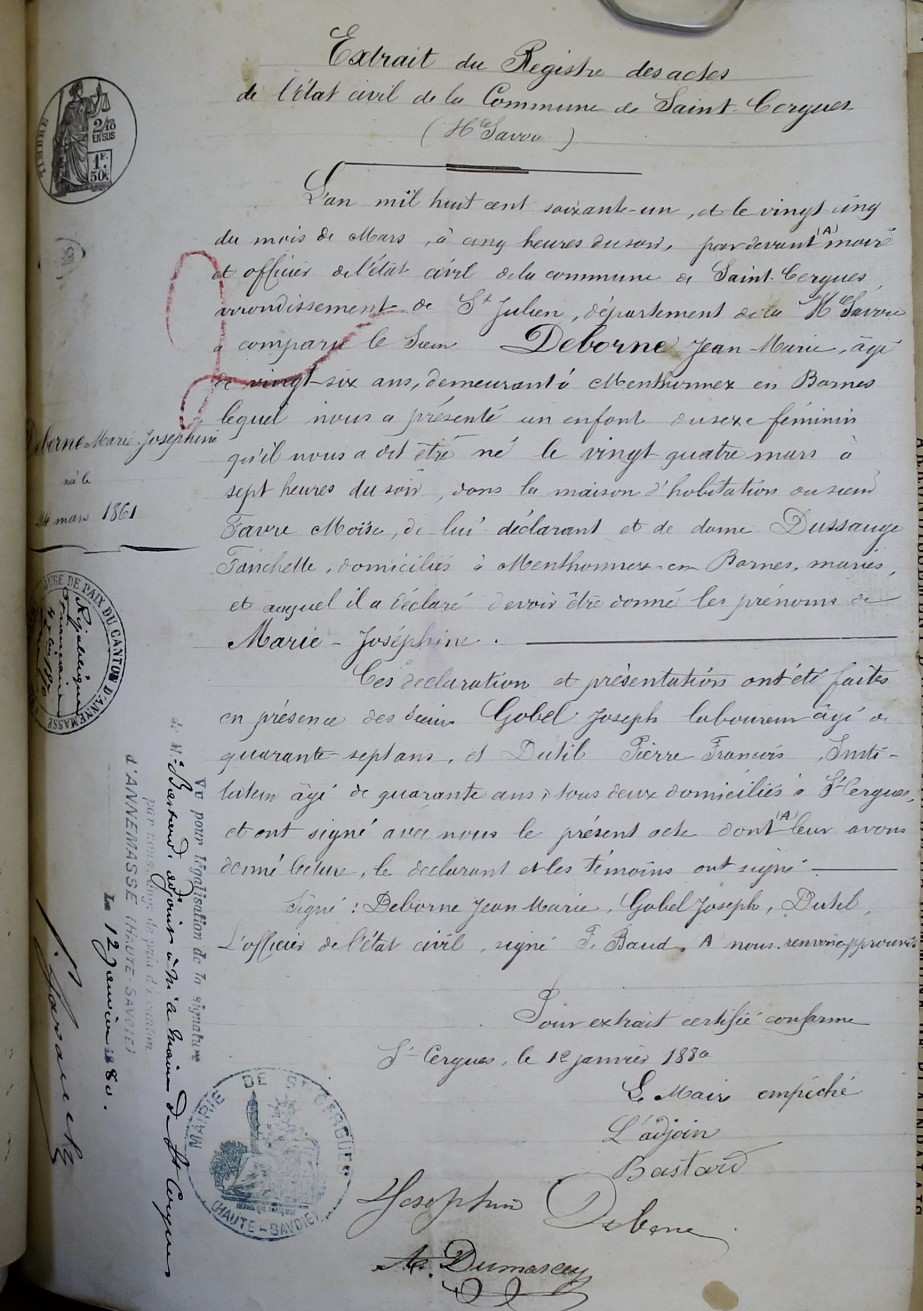 Extrait du Registre des actes
de l'état civil de la Commune de Saint-Cergues
(Hte Savoie)
TIMBRE
2/10
EN SUS
1F.
50c
L'an mil huit cent soixante-un, et le vingt cinq
du mois de Mars, à cinq heures du soir, par devant (A) maire
et officier de l'état civil de la commune de Saint-Cergues
arrondissement de St Julien, département de la Hte Savoie
a comparu le Sieur Deborne Jean-Marie, âgé
de vingt-six ans, demeurant à Menthonnex en Bornes
lequel nous a présenté un enfant du sexe féminin
qu'il nous a dit être né le vingt quatre mars à
sept heures du soir, dans la maison d'habitation du sieur
Favre Moïse, de lui déclarant et de dame Dussauge
Fanchette, domiciliés à Menthonnex-en Bornes, mariés,
et auquel il a déclaré devoir être donné les prénoms de
Marie-Joséphine.
Ces déclaration et présentation ont été faites
en présence des sieurs Gobel Joseph laboureur âgé de
quarante-sept ans, et Dutil Pierre François, Insti-
tuteur âgé de quarante ans, tous deux domiciliés à St Cergues,
et ont signé avec nous le présent acte dont (A) leur avons
donné lecture, le déclarant et les témoins ont signé
Signé : Deborne Jean Marie, Gobel Joseph, Dutil,
L'officier de l'état civil, signé F. Baud. A nous. renvoi approuvé
Pour extrait certifié conforme
St Cergues, le 12 janvier 1880
Le Maire empêché
L'adjoin
Bastard
Josephine Deborne
A. Dumarcey
Deborne Marie Joséphine
né le
24 mars 1861
JUSTICE DE PAIX DU CANTON D'ANNEMASSE
République
Française
Vu pour légalisation de la signature
de Mr Bastard, adjoint à Mr le Maire de St Cergues
par nous, juge de paix du canton
d'ANNEMASSE (HAUTE-SAVOIE)
Le 12 janvier 1880.
MAIRIE DE ST CERGUES
(HAUTE-SAVOIE)